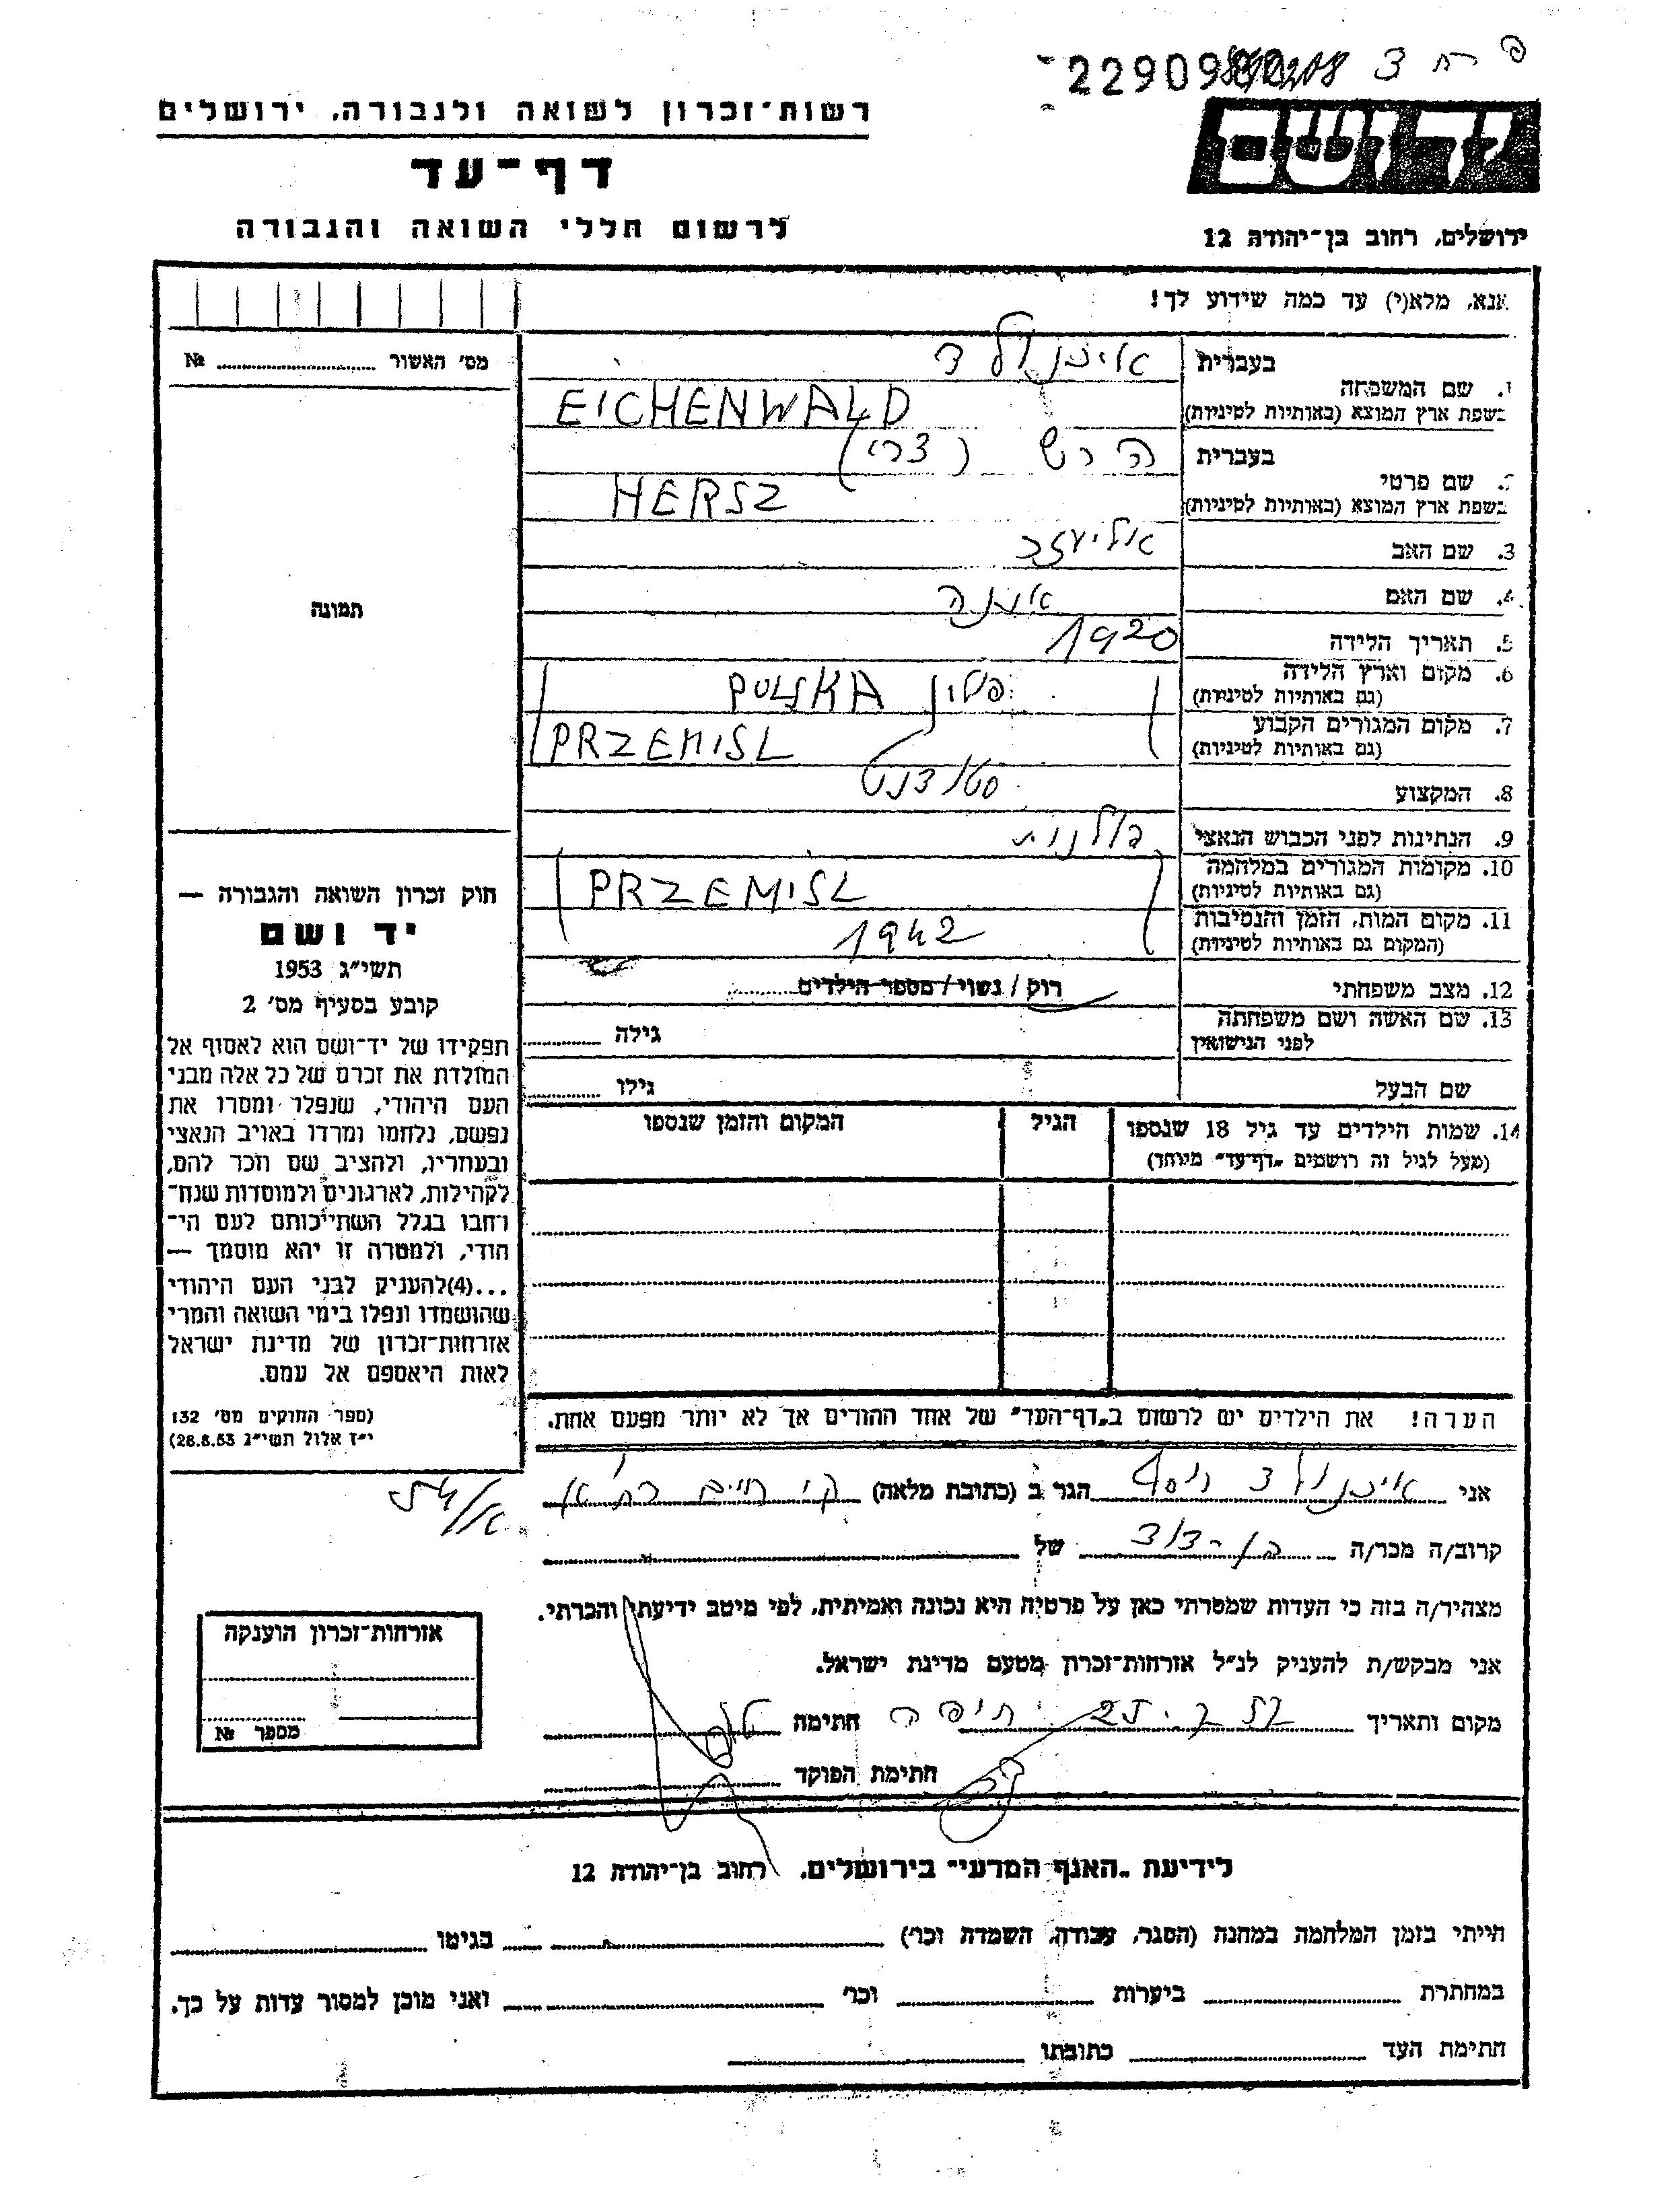 229098
רשות־זכרון לשואה ולגבורה, ירושלים
דף־עד
לרשום חללי השואה והגבורה
יד ושם
ירושלים, רחוב בן־יהודה 12
אנא, מלא(י) עד כמה שידוע לך!
מס׳ האשור № 
1. שם המשפחה
בעברית
בשפת ארץ המוצא (באותיות לטיניות)
EICHENWALD
2. שם פרטי
בעברית הרש (צבי)
בשפת ארץ המוצא (באותיות לטיניות)
HERSZ
3. שם האב אליעזר
4. שם האם
5. תאריך הלידה 1920
6. מקום וארץ הלידה
(גם באותיות לטיניות)
פולין POLSKA
7. מקום המגורים הקבוע
(גם באותיות לטיניות)
PRZEMISL
8. המקצוע סטודנט
9. הנתינות לפני הכבוש הנאצי פולנית
10. מקומות המגורים במלחמה
(גם באותיות לטיניות)
PRZEMISL
11. מקום המות, הזמן והנסיבות
(המקום גם באותיות לטיניות)
1942
12. מצב משפחתי רוק / נשוי / מספר הילדים
13. שם האשה ושם משפחתה
לפני הנישואין
גילה
שם הבעל גילו
14. שמות הילדים עד גיל 18 שנספו
(מעל לגיל זה רושמים „דף־עד” מיוחד)
הגיל
המקום והזמן שנספו
הערה! את הילדים יש לרשום ב„דף־העד” של אחד ההורים אך לא יותר מפעם אחת.
תמונה
חוק זכרון השואה והגבורה —
יד ושם
תשי״ג 1953
קובע בסעיף מס׳ 2
תפקידו של יד־ושם הוא לאסוף אל
המולדת את זכרם של כל אלה מבני
העם היהודי, שנפלו ומסרו את
נפשם, נלחמו ומרדו באויב הנאצי
ובעוזריו, ולהציב שם וזכר להם,
לקהילות, לארגונים ולמוסדות שנח־
רחבו בגלל השתייכותם לעם הי־
הודי, ולמטרה זו יהא מוסמך —
...(4)להעניק לבני העם היהודי
שהושמדו ונפלו בימי השואה והמרי
אזרחות־זכרון של מדינת ישראל
לאות היאספם אל עמם.
(ספר החוקים מס׳ 132
י״ז אלול תשי״ג 28.8.53)
אני יוסף הגר ב (כתובת מלאה) ק׳ חיים
קרוב/ה מכר/ה בן-דוד של
מצהיר/ה בזה כי העדות שמסרתי כאן על פרטיה היא נכונה ואמיתית, לפי מיטב ידיעתי והכרתי.
אני מבקש/ת להעניק לנ״ל אזרחות־זכרון מטעם מדינת ישראל.
מקום ותאריך חיפה חתימה
חתימת הפוקד
אזרחות־זכרון הוענקה
מספר №
לידיעת „האגף המדעי” בירושלים, רחוב בן־יהודה 12
הייתי בזמן המלחמה במחנה (הסגר, עבודה, השמדה וכו׳) בגיטו
במחתרת ביערות וכו׳ ואני מוכן למסור עדות על כך.
חתימת העד כתובתו